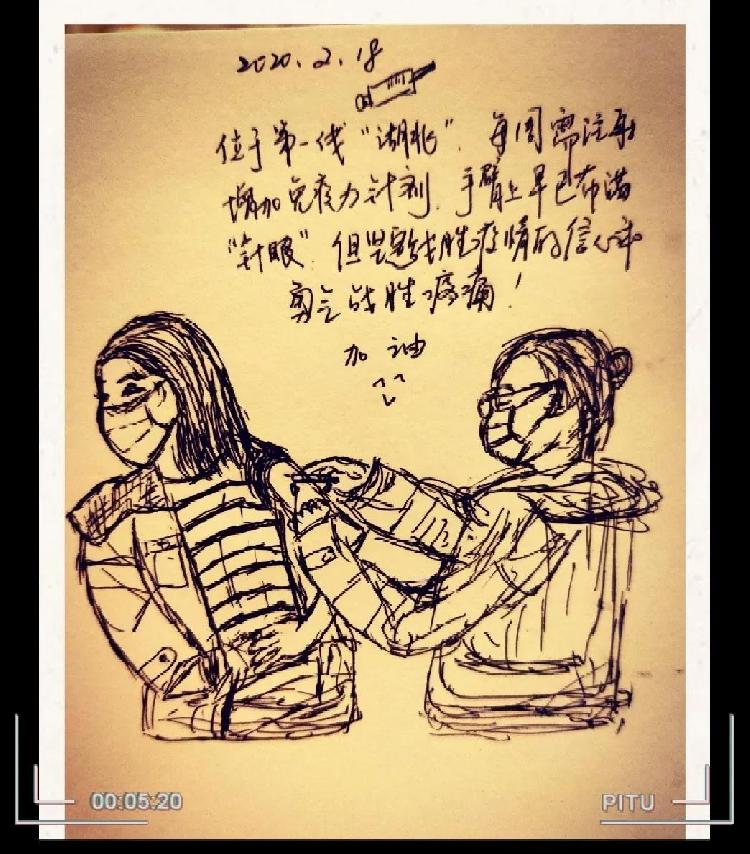 2020.2.18
位于第一线“湖北”. 每周需注射
增加免疫力针剂. 手臂上早已布满
“针眼”. 但是战胜疫情的信心和
勇气战胜疼痛!
加油
00:05:20
PITU